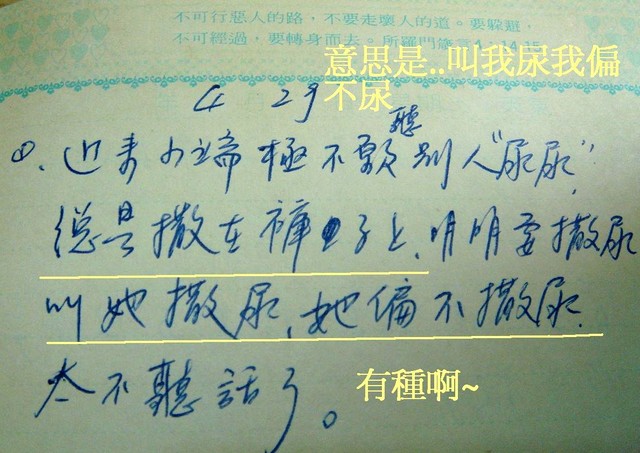 不可行惡人的路，不要走壞人的道。要躲避，
不可經過，要轉身而去。所羅門箴言4:14,15
意思是..叫我尿我偏
不尿
4 29
聽
①、近來小端極不願別人“尿尿”，
總是撒在褲子上，明明要撒尿
叫她撒尿，她偏不撒尿，
太不聽話了。
有種啊~